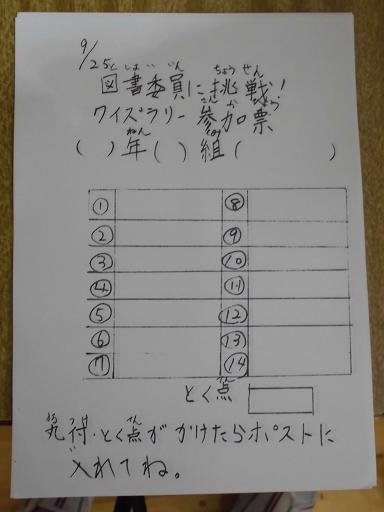 9/25
図書委員に挑戦!
クイズラリー参加票
( )年( )組( )
① ⑧
② ⑨
③ ⑩
④ ⑪
⑤ ⑫
⑥ ⑬
⑦ ⑭
とく点
丸付・とく点がかけたらポストに
入れてね。